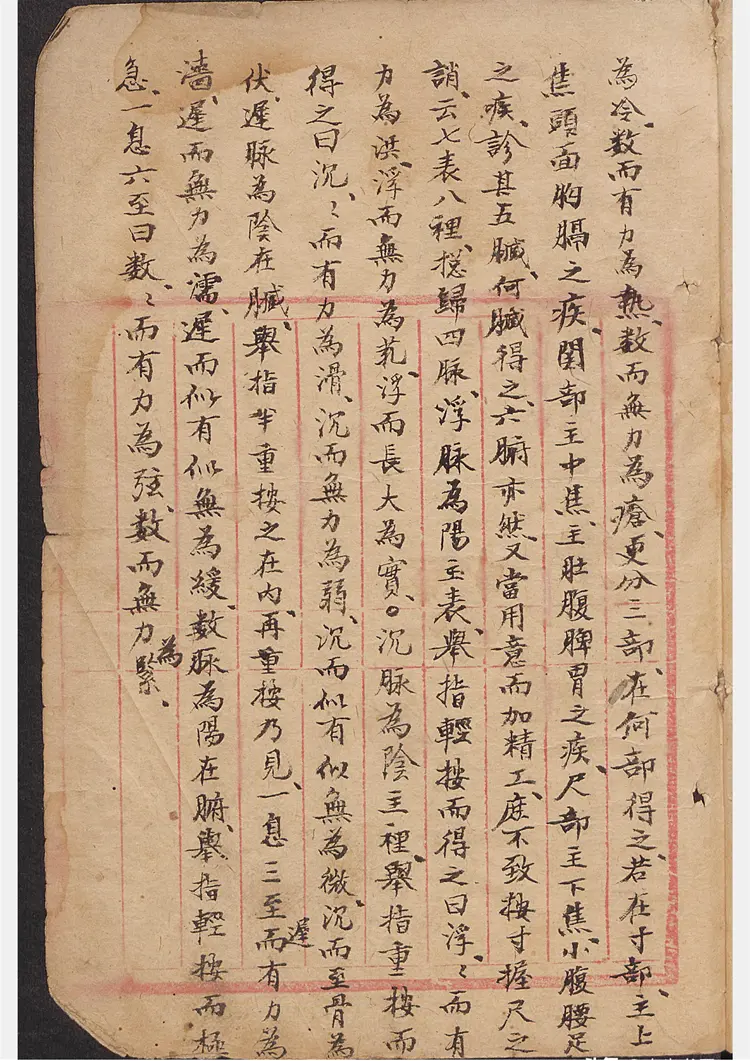 為冷、数而有力為熱、数而無力為瘡、更分三部、在何部得之、若在寸部、主上
焦頭面胸膈之疾、関部主中焦、主肚腹脾胃之疾、尺部主下焦、小腹腰足
之疾、診其五臓、何臓得之、六腑亦然、又當用意而加精工、庶不致按寸握尺之
誚、云七表八裡、捴歸四脉、浮脉為陽主表、舉指輕按而得之曰浮、〻而有
力為洪、浮而無力為芤、浮而長大為實、○沉脉為陰主裡、舉指重按而
得之曰沉、〻而有力為滑、沉而無力為弱、沉而似有似無為微、沉而至骨為
伏、遲脉為陰在臓、舉指半重按之在内、再重按乃見、一息三至而遲有力為
濇、遲而無力為濡、遲而似有似無為緩、数脉為陽在腑、舉指輕按而極
急、一息六至曰数、〻而有力為弦、数而無力為緊、